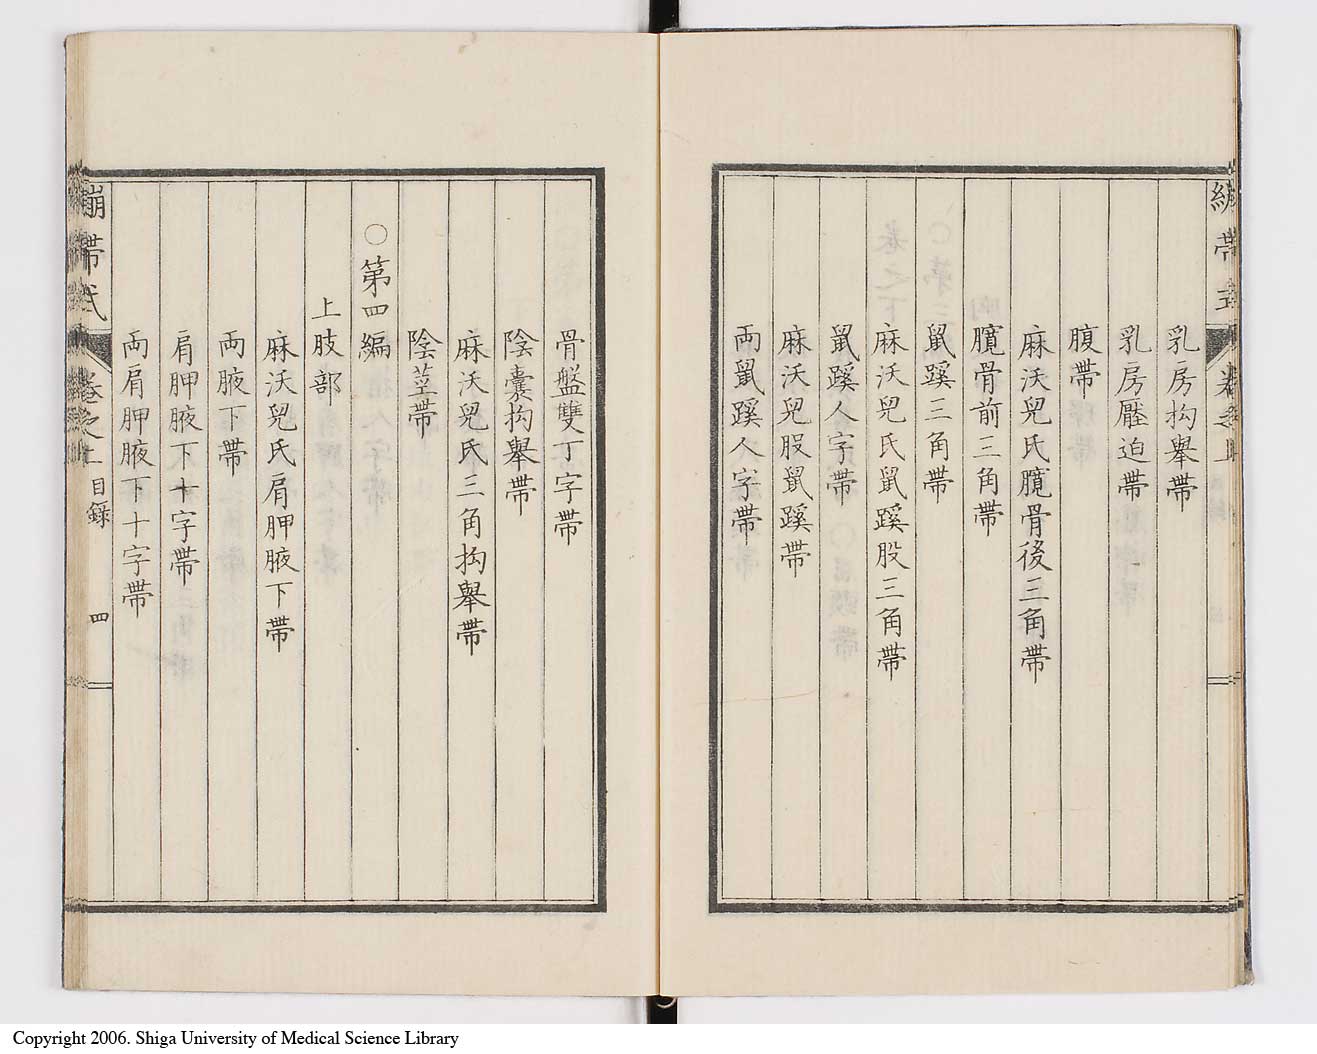 乳房抅舉帶
乳房壓迫帶
腹帶
麻沃兒氏髖骨後三角帶
髖骨前三角帶
鼠蹊三角帶
麻沃兒氏鼠蹊股三角帶
鼠蹊人字帶
麻沃兒股鼠蹊帶
両鼠蹊人字帶
骨盤雙丁字帶
陰囊抅舉帶
麻沃兒氏三角抅舉帶
陰莖帶
○第四編
上肢部
麻沃兒氏肩胛腋下帶
両腋下帶
肩胛腋下十字帶
両肩胛腋下十字帶
繃帶式 卷之上 目錄 四
Copyright 2006. Shiga University of Medical Science Library